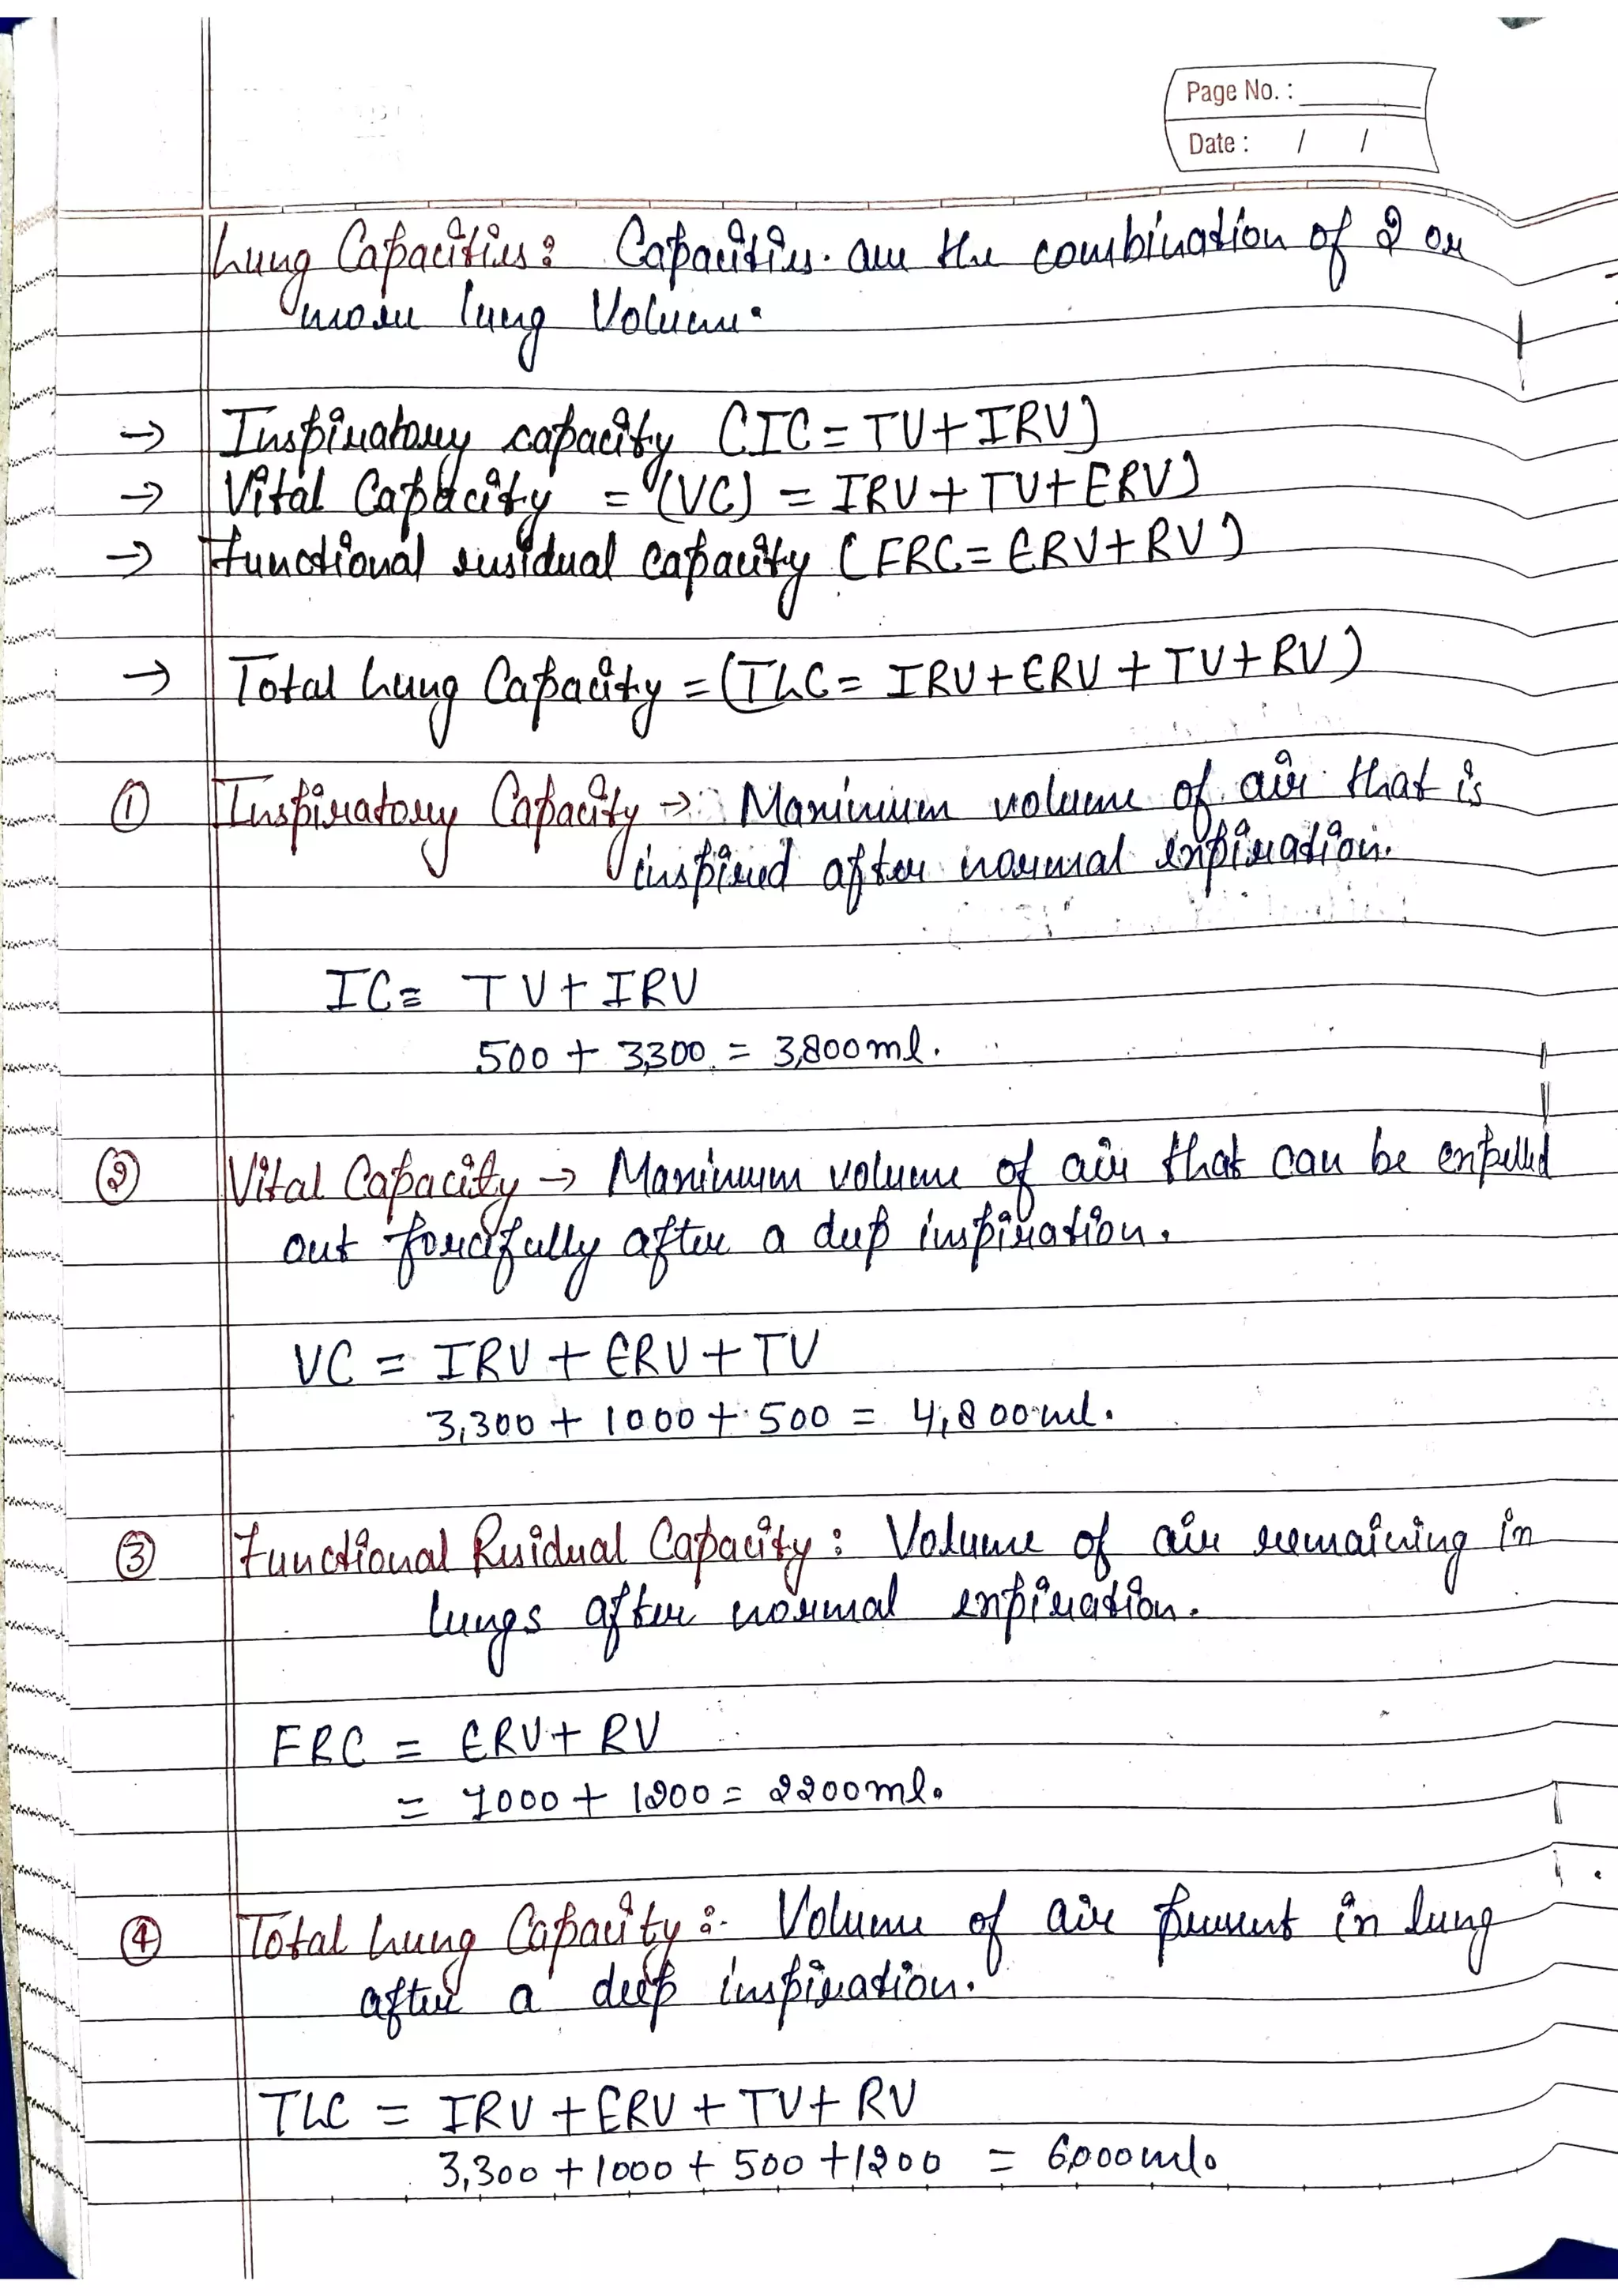 Page No. :
Date : / /
Lung Capacities: Capacities are the combination of 2 or
more lung Volume.
→ Inspiratory capacity (IC = TV + IRV)
→ Vital Capacity = (VC) = IRV + TV + ERV)
→ Functional residual capacity (FRC = ERV + RV)
→ Total Lung Capacity = (TLC = IRV + ERV + TV + RV)
① Inspiratory Capacity → Maximium volume of air that is
inspired after normal expiration.
IC = TV + IRV
500 + 3,300 = 3,800 ml.
② Vital Capacity → Maximum volume of air that can be expelled
out forcefully after a deep inspiration.
VC = IRV + ERV + TV
3,300 + 1000 + 500 = 4,800 ml.
③ Functional Residual Capacity : Volume of air remaining in
lungs after normal expiration.
FRC = ERV + RV
= 1000 + 1200 = 2200 ml.
④ Total Lung Capacity :- Volume of air present in lung
after a deep inspiration.
TLC = IRV + ERV + TV + RV
3,300 + 1000 + 500 + 1200 = 6,000 ml.